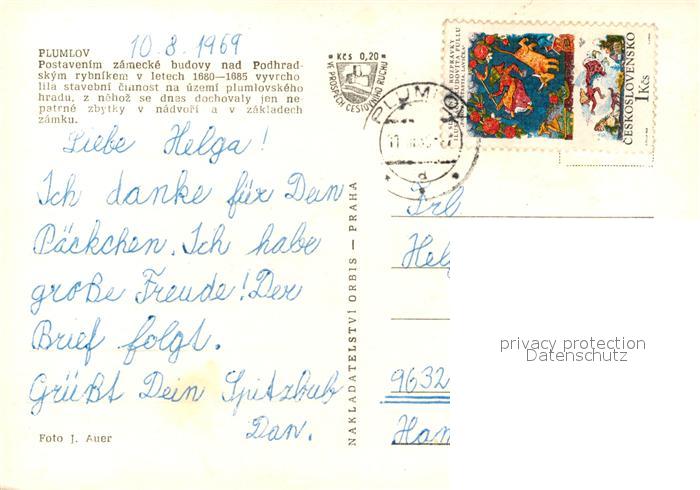 10.8.1969
PLUMLOV
Postavením zámecké budovy nad Podhrad-
ským rybníkem v letech 1680—1685 vyvrcho-
lila stavební činnost na území plumlovského
hradu, z něhož se dnes dochovaly jen ne-
patrné zbytky v nádvoří a v základech
zámku.
Liebe Helga!
Ich danke für Dein
Päckchen. Ich habe
große Freude! Der
Brief folgt.
Grüßt Dein Spitzbub
Dan.
Foto J. Auer
NAKLADATELSTVÍ ORBIS — PRAHA
Kčs 0,20
VE PROSPĚCH CESTOVNÍHO RUCHU
PLUMLOV
ROZPRÁVKY
ĽUDOVÍTA FULLU
ČESKOSLOVENSKO
1 Kčs
Frl
Helg
9632
Han
privacy protection
Datenschutz